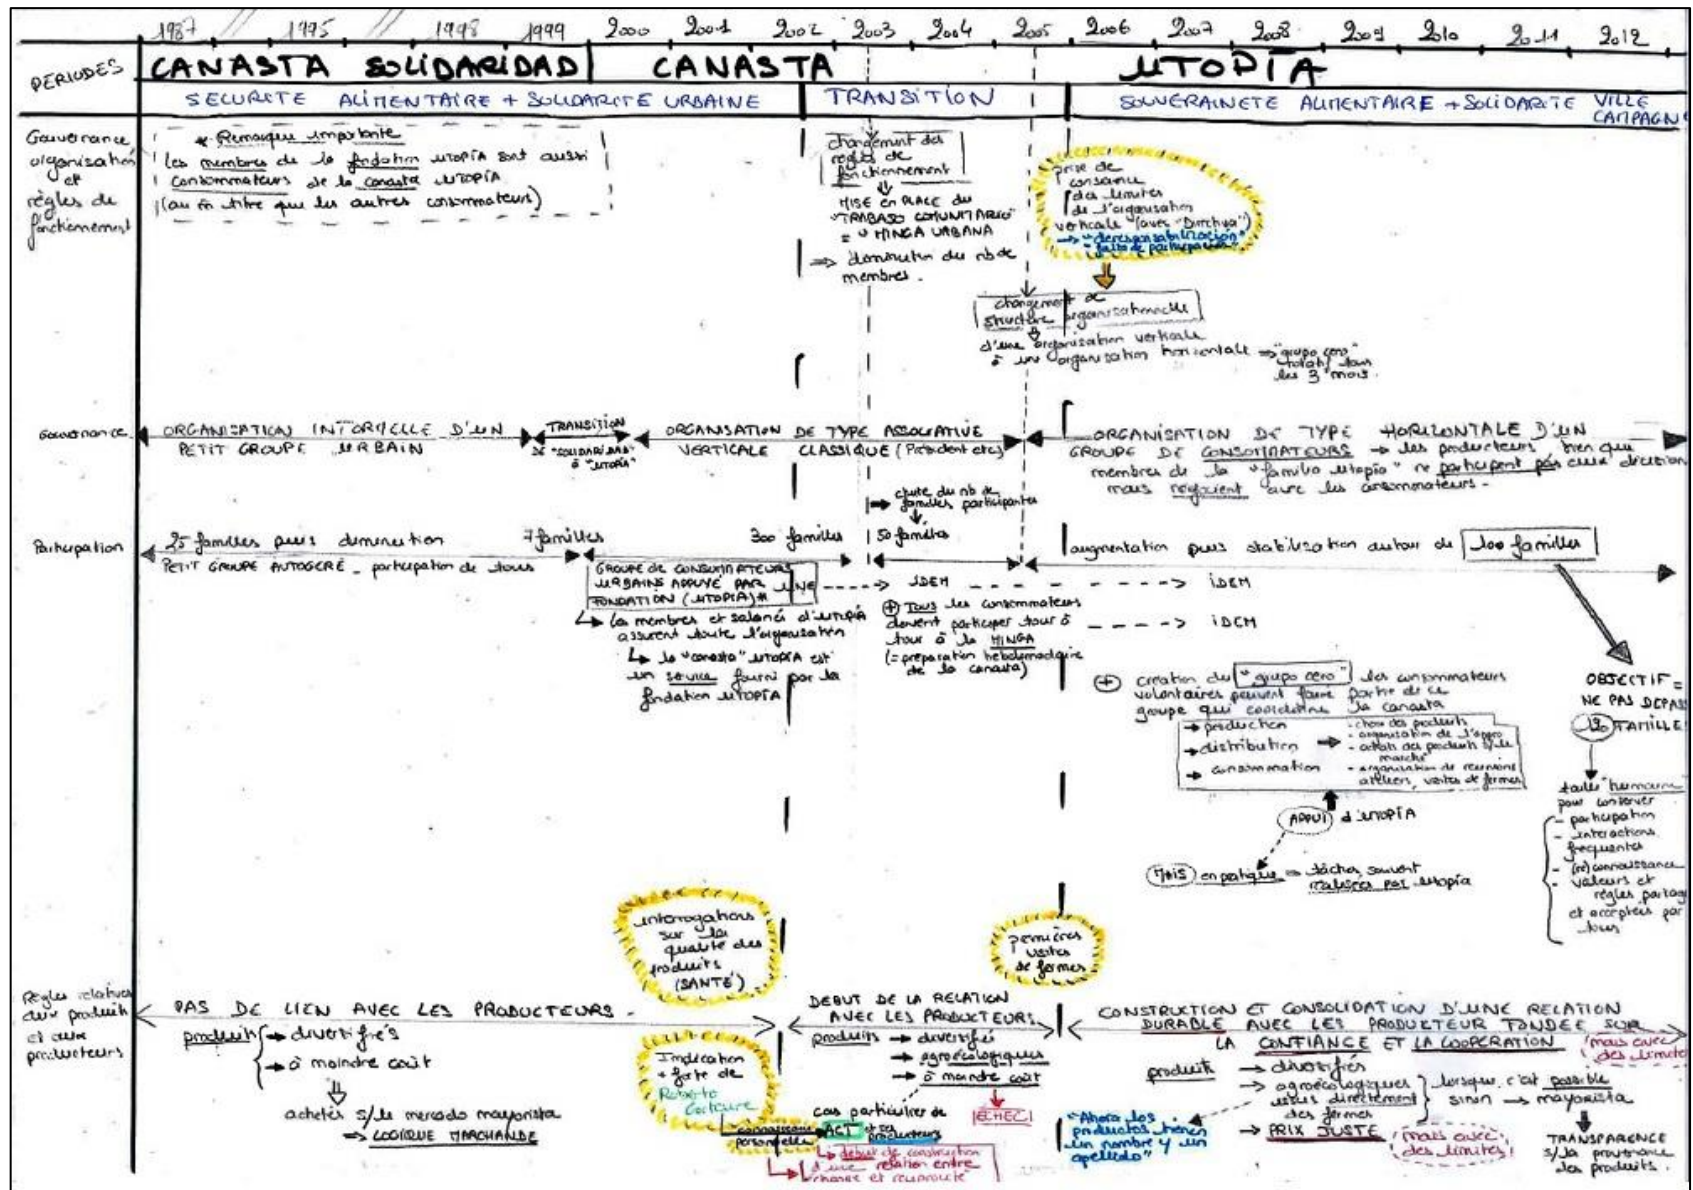 1987 // 1995 // 1998 1999 2000 2001 2002 2003 2004 2005 2006 2007 2008 2009 2010 2011 2012
PERIODES
CANASTA SOLIDARIDAD
CANASTA UTOPÍA
SECURITE ALIMENTAIRE + SOLIDARITE URBAINE
TRANSITION
SOUVERAINETE ALIMENTAIRE + SOLIDARITE VILLE
CAMPAGN
Gouvernance
organisation
et
règles de
fonctionnement
* Remarque importante
les membres de la fondation UTOPÍA sont aussi
consommateurs de la canasta UTOPIA
(au m titre que les autres consommateurs)
changement des
règles de
fonctionnement
MISE en PLACE du
"TRABAJO COMUNITARIO"
= "MINGA URBANA
⇒ diminution du nb de
membres.
prise de
conscience
des limites
de l'organisation
verticale (avec "Directiva")
→ "deresponsabilización"
- falta de participación"
changement de
structure organisationnelle
d'une organisation verticale
à une organisation horizontale ⇒ "grupo cero"
rotatif tous
les 3 mois.
Gouvernance
ORGANISATION INFORMELLE D'UN
PETIT GROUPE URBAIN
TRANSITION
DE "SOLIDARIDAD"
à "UTOPÍA"
ORGANISATION DE TYPE ASSOCIATIVE
VERTICALE CLASSIQUE (Président etc)
ORGANISATION DE TYPE HORIZONTALE D'UN
GROUPE DE CONSOMMATEURS → les producteurs bien que
membres de la "familia utopia" ne participent pas aux décision
mais négocient avec les consommateurs -
→ chute du nb de
familles participantes
Participation
25 familles puis diminution
7 familles
300 familles
50 familles
augmentation puis stabilisation autour de 100 familles
PETIT GROUPE AUTOGERÉ - participation de tous
GROUPE DE CONSOMMATEURS
URBAINS APPUYÉ PAR UNE
FONDATION (UTOPÍA)*
----> IDEM ----> IDEM
↳ les membres et salariés d'UTOPÍA
assurent toute l'organisation
↳ la "canasta" UTOPÍA est
un service fourni par la
fondation UTOPÍA
⊕ TOUS les consommateurs
doivent participer tour à
tour à la MINGA
(= préparation hebdomadaire
de la canasta)
----> IDEM
⊕ création du "grupo cero" les consommateurs
volontaires peuvent faire partie de ce
groupe qui coordonne la canasta
→ production
→ distribution →
→ consommation
- choix des produits
- organisation de l'appro
- achats des produits s/le
marché
- organisation de réunions
ateliers, visites de fermes
APPUI d'UTOPÍA
MAIS en pratique ⇒ tâches souvent
réalisées par Utopía
OBJECTIF =
NE PAS DEPAS
120 FAMILLE
taille "humaine
pour conserver
- participation
- interactions
fréquentes
- (re)connaissance
- valeurs et
règles partag
et acceptées par
tous
interrogations
sur la
qualité des
produits
(SANTÉ)
premières
visites
de fermes
Règles relatives
aux produits
et aux
producteurs
PAS DE LIEN AVEC LES PRODUCTEURS -
produits → diversifiés
→ à moindre coût
achetés s/le mercado mayorista
⇒ LOGIQUE MARCHANDE
Implication
+ forte de
Roberto
personnelle
DEBUT DE LA RELATION
AVEC LES PRODUCTEURS
produits → diversifiés
→ agroécologiques
→ à moindre coût
ECHEC!
cas particulier de
ACT et ses producteurs
↳ début de construction
d'une relation entre
échange et réciprocité
CONSTRUCTION ET CONSOLIDATION D'UNE RELATION
DURABLE AVEC LES PRODUCTEUR FONDEE SUR
LA CONFIANCE ET LA COOPERATION
mais avec
des limite
produits → diversifiés
→ agroécologiques
issus directement
des fermes
→ PRIX JUSTE
lorsque c'est possible
sinon → mayorista
mais avec
des limites
"Ahora los
productos tienen
un nombre y un
apellido"
TRANSPARENCE
s/la provenance
des produits.